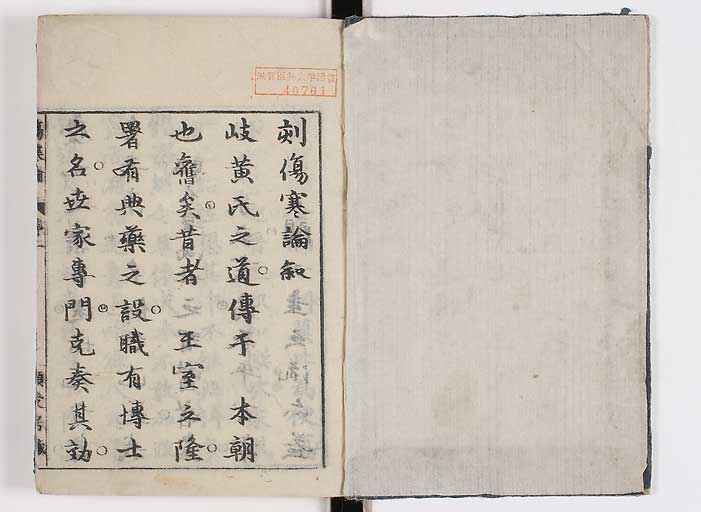 刻傷寒論叙
岐黄氏之道傳于本朝
也舊矣昔者之王室之隆
署有典藥之設職有博士
之名世家專門克奏其効
40761